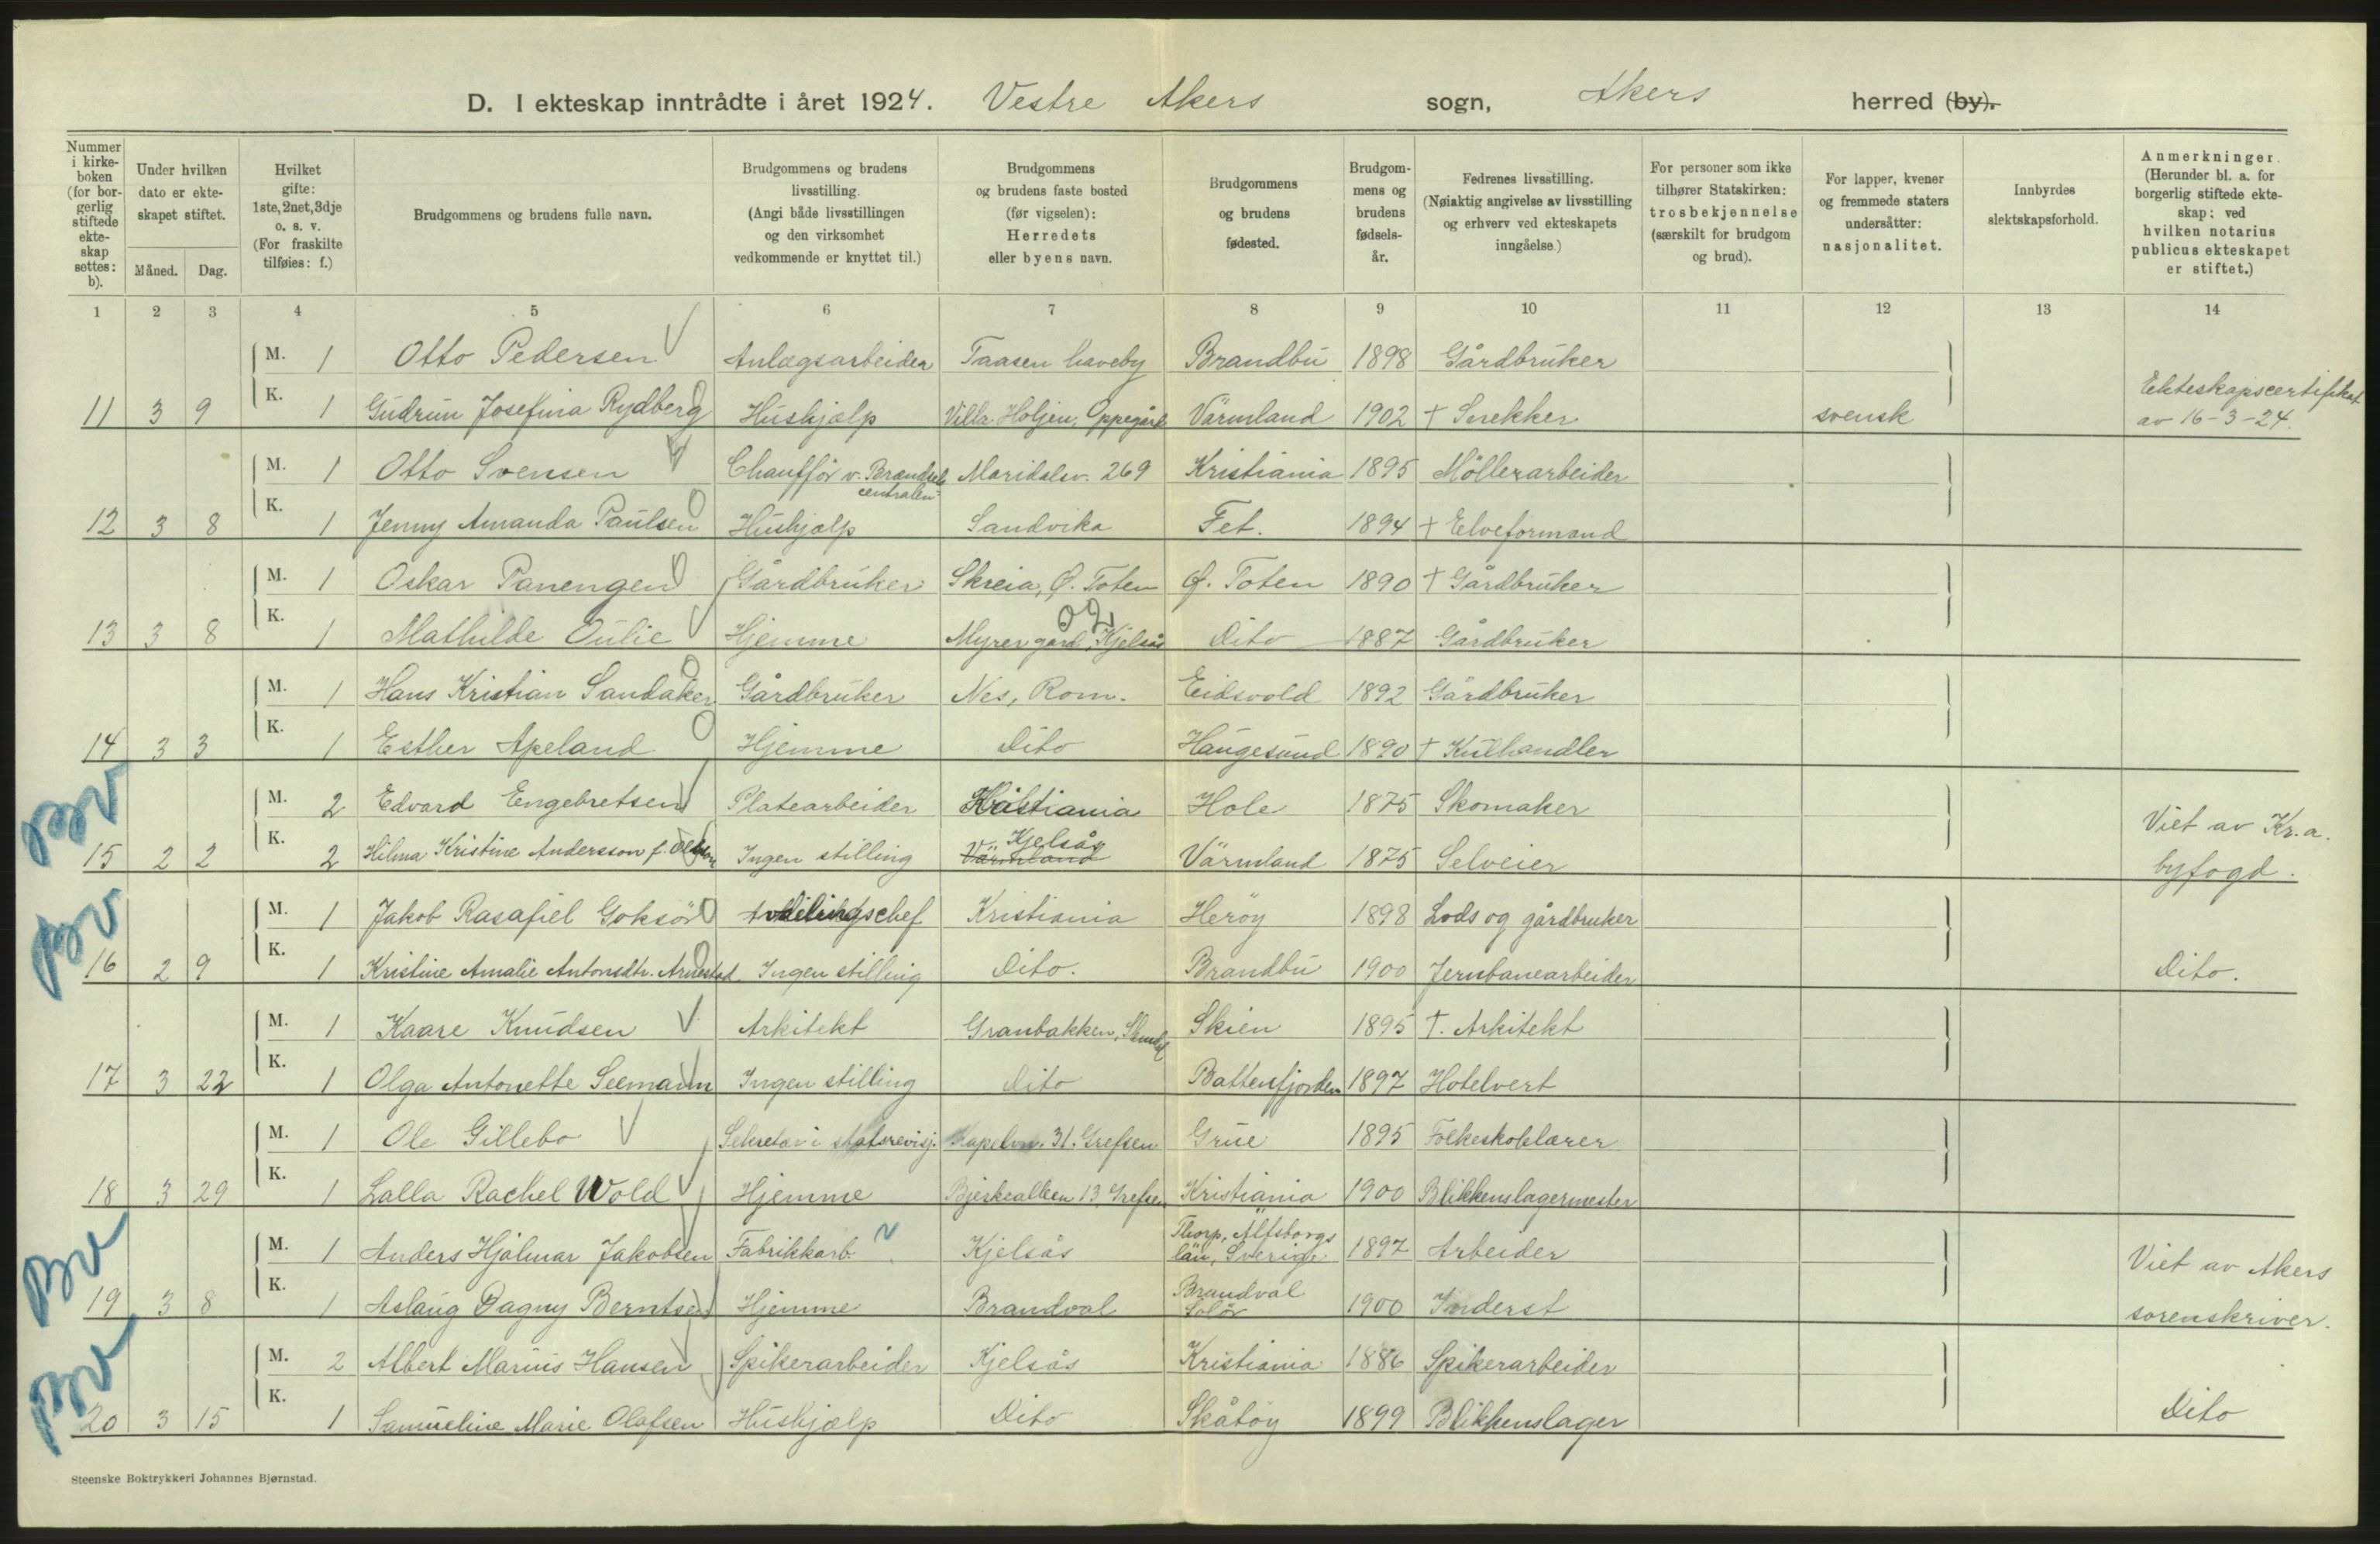 D. I ekteskap inntrådte i året 1924. Vestre Akers sogn, Akers herred (by).
Nummer i kirkeboken (for borgerlig stiftede ekteskap settes: b).
Under hvilken dato er ekteskapet stiftet.
Måned. Dag.
Hvilket gifte: 1ste, 2net, 3dje o. s. v. (For fraskilte tilføies: f.)
Brudgommens og brudens fulle navn.
Brudgommens og brudens livsstilling. (Angi både livsstillingen og den virksomhet vedkommende er knyttet til.)
Brudgommens og brudens faste bosted (før vigselen): Herredets eller byens navn.
Brudgommens og brudens fødested.
Brudgommens og brudens fødselsår.
Fedrenes livsstilling. (Nøiaktig angivelse av livsstilling og erhverv ved ekteskapets inngåelse.)
For personer som ikke tilhører Statskirken: trosbekjennelse (særskilt for brudgom og brud).
For lapper, kvener og fremmede staters undersåtter: nasjonalitet.
Innbyrdes slektskapsforhold.
Anmerkninger. (Herunder bl. a. for borgerlig stiftede ekteskap: ved hvilken notarius publicus ekteskapet er stiftet.)
1 2 3 4 5 6 7 8 9 10 11 12 13 14
M. 1 Otto Pedersen Anlægsarbeider Taasen haveby Brandbu 1898 Gårdbruker
11 3 9 K. 1 Gudrun Josefina Rydberg Hushjælp Villa Holjen, Oppegård Värmland 1902 † Snekker svensk Ekteskapscertifikat av 16-3-24.
M. 1 Otto Svensen Chauffør v. Brændselscentralen Maridalsv. 269 Kristiania 1895 Möllerarbeider
12 3 8 K. 1 Jenny Amanda Paulsen Hushjælp Sandvika Fet. 1894 † Elveformand
M. 1 Oskar Panengen Gårdbruker Skreia, Ø. Toten Ø. Toten 1890 † Gårdbruker
13 3 8 K. 1 Mathilde Oulie Hjemme Myrer gård, Kjelsås Dito 1887 Gårdbruker
M. 1 Hans Kristian Sandaker Gårdbruker Nes, Rom. Eidsvold 1892 Gårdbruker
14 3 3 K. 1 Esther Apeland Hjemme Dito Haugesund 1890 † Kulhandler
Bv M. 2 Edvard Engebretsen Platearbeider Kristiania Hole 1875 Skomaker
15 2 2 K. 2 Hilma Kristine Andersson f. Ingen stilling Värmland Kjelsås Värmland 1875 Selveier Viet av Kr.a. byfogd.
Bv M. 1 Jakob Rasafiel Goksör Avdelingschef Kristiania Heröy 1898 Lods og gårdbruker
16 2 9 K. 1 Kristine Amalie Antonsdtr. Arnestad Ingen stilling Dito. Brandbu 1900 Jernbanearbeider Dito.
M. 1 Kaare Knudsen Arkitekt Granbakken, Skien 1895 †. Arkitekt
17 3 22 K. 1 Olga Antonette Seemann Ingen stilling Dito Battenfjorden 1897 Hotelvert
M. 1 Ole Gillebo Sekretær i statsrevisj. Kapelvn. 31. Grefsen Grue 1895 Folkeskolelærer
18 3 29 K. 1 Lalla Rachel Wold Hjemme Bjerkealleen 13 Grefsen Kristiania 1900 Blikkenslagermester
Bv M. 1 Anders Hjalmar Jakobsen Fabrikkarb. Kjelsås Thorp, Älfsborgs län, Sverige 1897 Arbeider
19 3 8 K. 1 Aslaug Dagny Berntsen Hjemme Brandval Brandval Solör 1900 Inderst Viet av Akers sorenskriver.
Bv M. 2 Albert Marius Hansen Spikerarbeider Kjelsås Kristiania 1886 Spikerarbeider
20 3 15 K. 1 Samueline Marie Olafsen Hushjælp Dito Skåtöy 1899 Blikkenslager Dito
Steenske Boktrykkeri Johannes Bjørnstad.